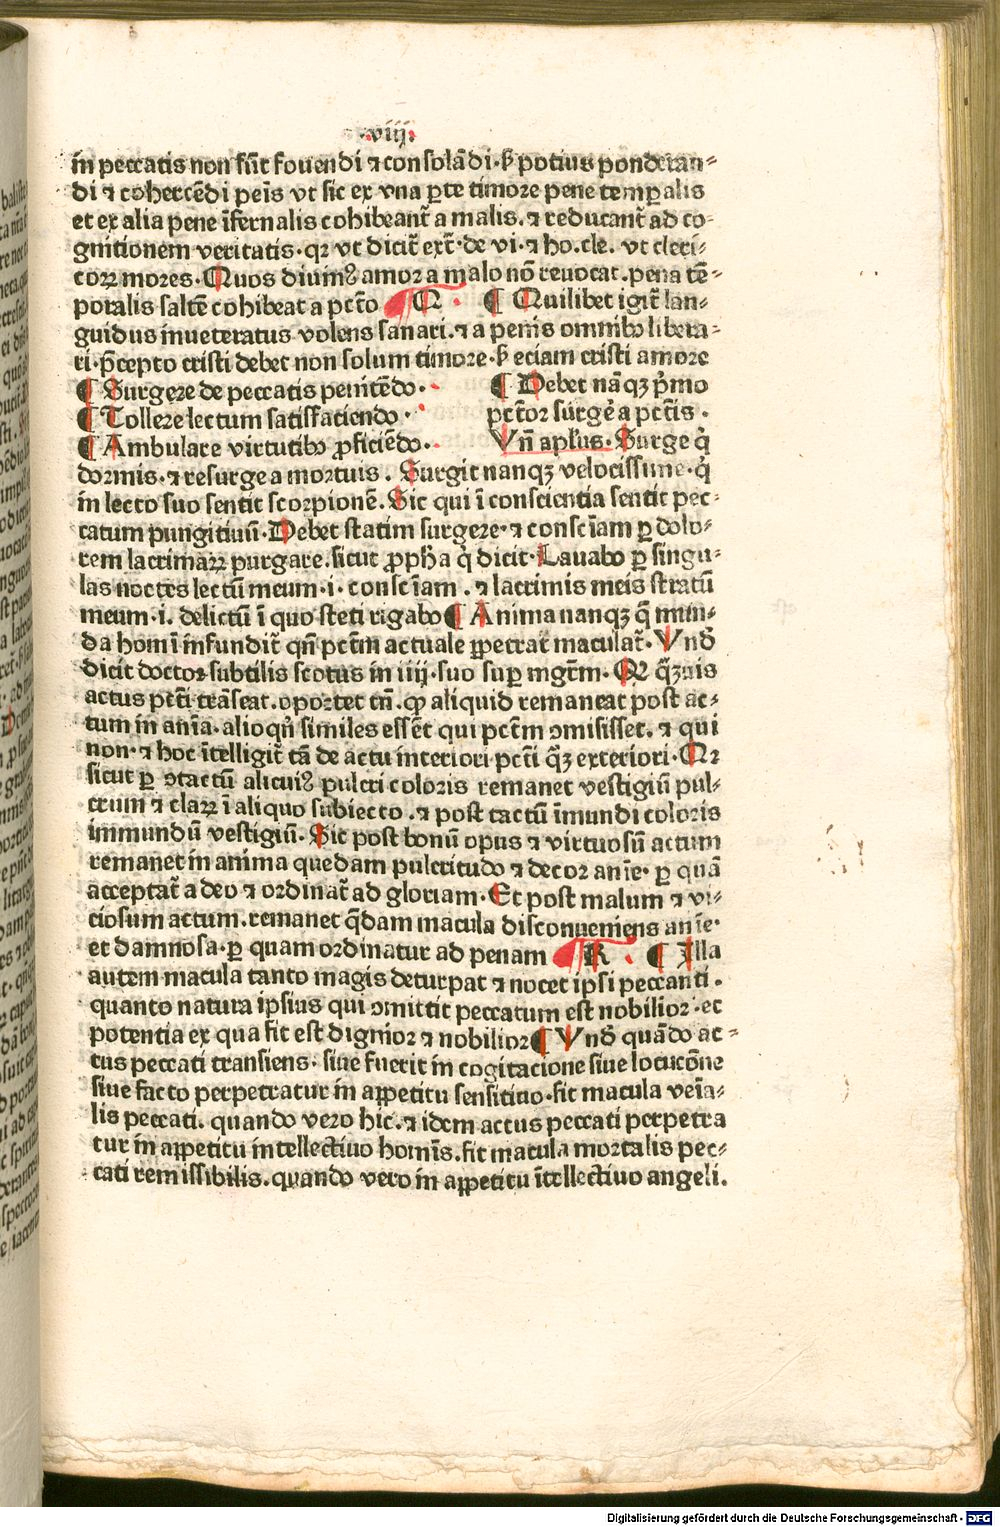 ·viij·
in peccatis non sūt fouendi ⁊ consolādi· ß potius pondeꝛan⸗
di ⁊ cohercēdi peīs vt sic ex vna ꝑte timore pene temꝑalis
et ex alia pene īfernalis cohibeant̄ a malis. ⁊ reducant̄ ad co⸗
gnitionem veritatis· qꝛ vt dicit̄ ext̄· de vi· ⁊ ho. cle. vt cleri⸗
coꝝ mores· Quos diuinꝰ amor a malo nō reuocat. pena tē⸗
poralis saltē cohibeat a pct̄o Q · ¶ Quilibet igit̄ lan⸗
guidus inueteratus volens sanari. ⁊ a penis omnibꝰ libera⸗
ri· p̄cepto cristi debet non solum timore· ß eciam cristi amore
¶ Surgeꝛe de peccatis penitēdo· ¶ Debet nāqꝫ p̄mo
¶ Tolleꝛe lectum satisfaciendo · pct̄or surge᷑ a pct̄is ·
¶ Ambulare virtutibꝰ ꝓficiēdo· Vn̄ apl̄us· Surge q̇
dormis· ⁊ resurge a mortuis . Surgit nanqꝫ velocissime· q̇
in lecto suo sentit scorpionē. Sic qui ī conscientia sentit pec⸗
catum pungitiuū· Debet statim surgeꝛe· ⁊ consc̄iam ꝑ dolo⸗
rem lacrimaꝝ purgare. sicut ꝓpha q̇ dicit· Lauabo ꝑ singu⸗
las noctes lectū meum · i · consc̄iam . ⁊ lacrimis meis stratū
meum · i. delictū ī quo steti rigabo ¶ Anima nanqꝫ q̄ mun⸗
da homī infundit̄ qn̄ pct̄m actuale ꝑpetrat̄ maculat̄· Vnđ
dicit doctoꝛ subtilis scotus in iiij · suo suꝑ mgr̄m· Q̨ q̄ꝫuis
actus pct̄i trāseat. opoꝛtet tn̄· ꝙ aliquid remaneat post ac⸗
tum in anīa· alioqn̄ similes essēt qui pct̄m ꝯmisisset. ⁊ qui
non· ⁊ hoc ītelligit̄ tā de actu interiori pct̄i q̄ꝫ exteriori· Qꝛ
sicut ꝑ ꝯtactū alicuiꝰ pulcri coloris remanet vestigiū pul⸗
crum ⁊ claꝝ ī aliquo subiecto . ⁊ post tactū īmundi coloris
immundū vestigiū· Sic post bonū opus ⁊ virtuosū actum
remanet in anima quedam pulcritudo ⁊ decoꝛ anīe· ꝑ quā
acceptat̄ a deo ⁊ ordinat̄ ad gloriam· Et post malum ⁊ vi⸗
ciosum actum. remanet q̄dam macula disconueniens anīe·
et damnosa· ꝑ quam ordinatur ad penam R · ¶ Illa
autem macula tanto magis deturpat ⁊ nocet ipsi peccanti ·
quanto natura ipsius qui ꝯmittit peccatum est nobilior · et
potentia ex qua fit est dignior ⁊ nobilioꝛ ¶ Vnđ quādo ac⸗
tus peccati transiens· siue fuerit in cogitacione siue locucōne
siue facto perpetratur in appetitu sensitiuo · fit macula venīa⸗
lis peccati. quando veꝛo hic. ⁊ idem actus peccati perpetra
tur in appetitu intellectiuo homīs. fit macula mortalis pec⸗
cati remissibilis. quando vero in appetitu ītellectiuo angeli.
Digitalisierung gefördert durch die Deutsche Forschungsgemeinschaft - DFG